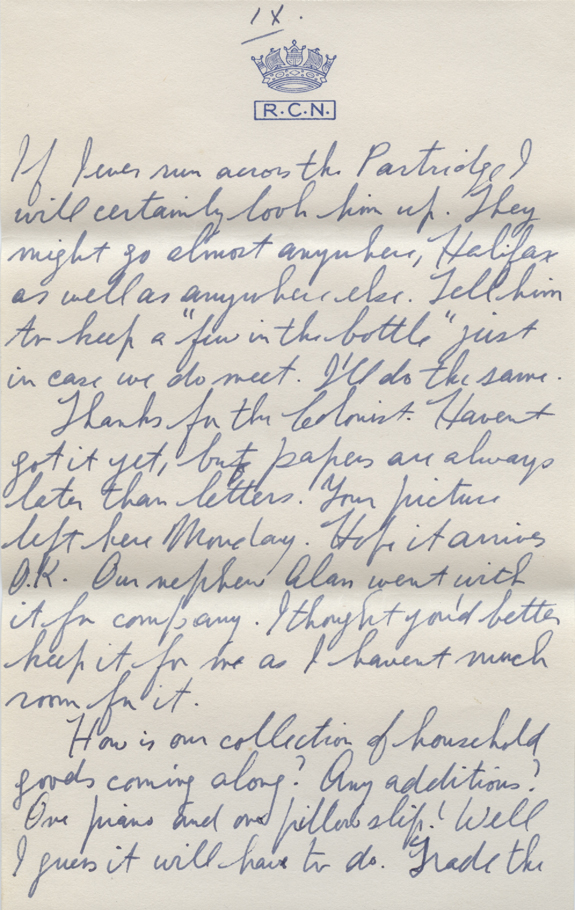 IX.
R.C.N.
If I ever run across the Partridge I
will certainly look him up. They
might go almost anywhere, Halifax
as well as anywhere else. Tell him
to keep a "few in the bottle" just
in case we do meet. I'll do the same.
Thanks for the Colonist. Havent
got it yet, but papers are always
later than letters. Your picture
left here Monday. Hope it arrives
O.K. Our nephew Alan went with
it for company. I thought you'd better
keep it for me as I havent much
room for it.
How is our collection of household
goods coming along? Any additions?
One piano and one pillow slip! Well
I guess it will have to do. Trade the